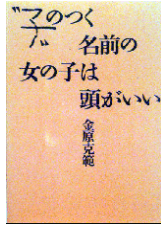 〝子〟のつく
名前の
女の子は
頭がいい
金原克範